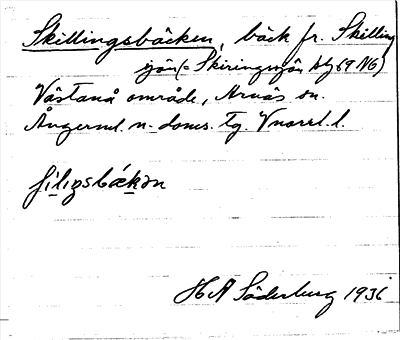 Skillingsbäcken, bäck fr. Skillings
sjön (= Skiringssjön bl 69 NG)
Västanå område, Arnäs sn.
Ångerml. n. doms. tg. Vnorrl. l.
ʃilıŋsbɛkən
HA Söderberg 1936